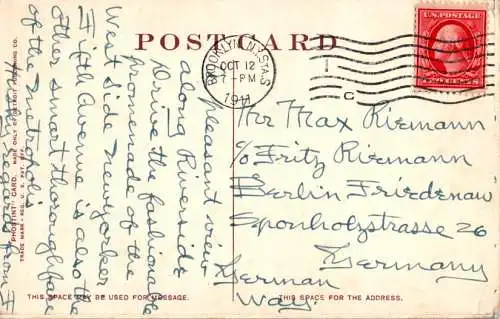 POST CARD
BROOKLYN, N.Y. STA. S
OCT 12
7-PM
1911
C
U.S. POSTAGE
Mr Max Riemann
c/o Fritz Riemann
Berlin Friedenau
Sponholzstrasse 26
Germany
German
Way.
pleasant view
along Riverside
Drive the fashionable
promenade of
West side newyorker
Fifth Avenue is also the
other smart thoroughfare
of the metropolis
regards from F
"PHOSTINT" CARD. MADE ONLY BY DETROIT PUBLISHING CO.
TRADE MARK - REG. U. S. PAT. OFF.
THIS SPACE MAY BE USED FOR MESSAGE.
THIS SPACE IS FOR THE ADDRESS.